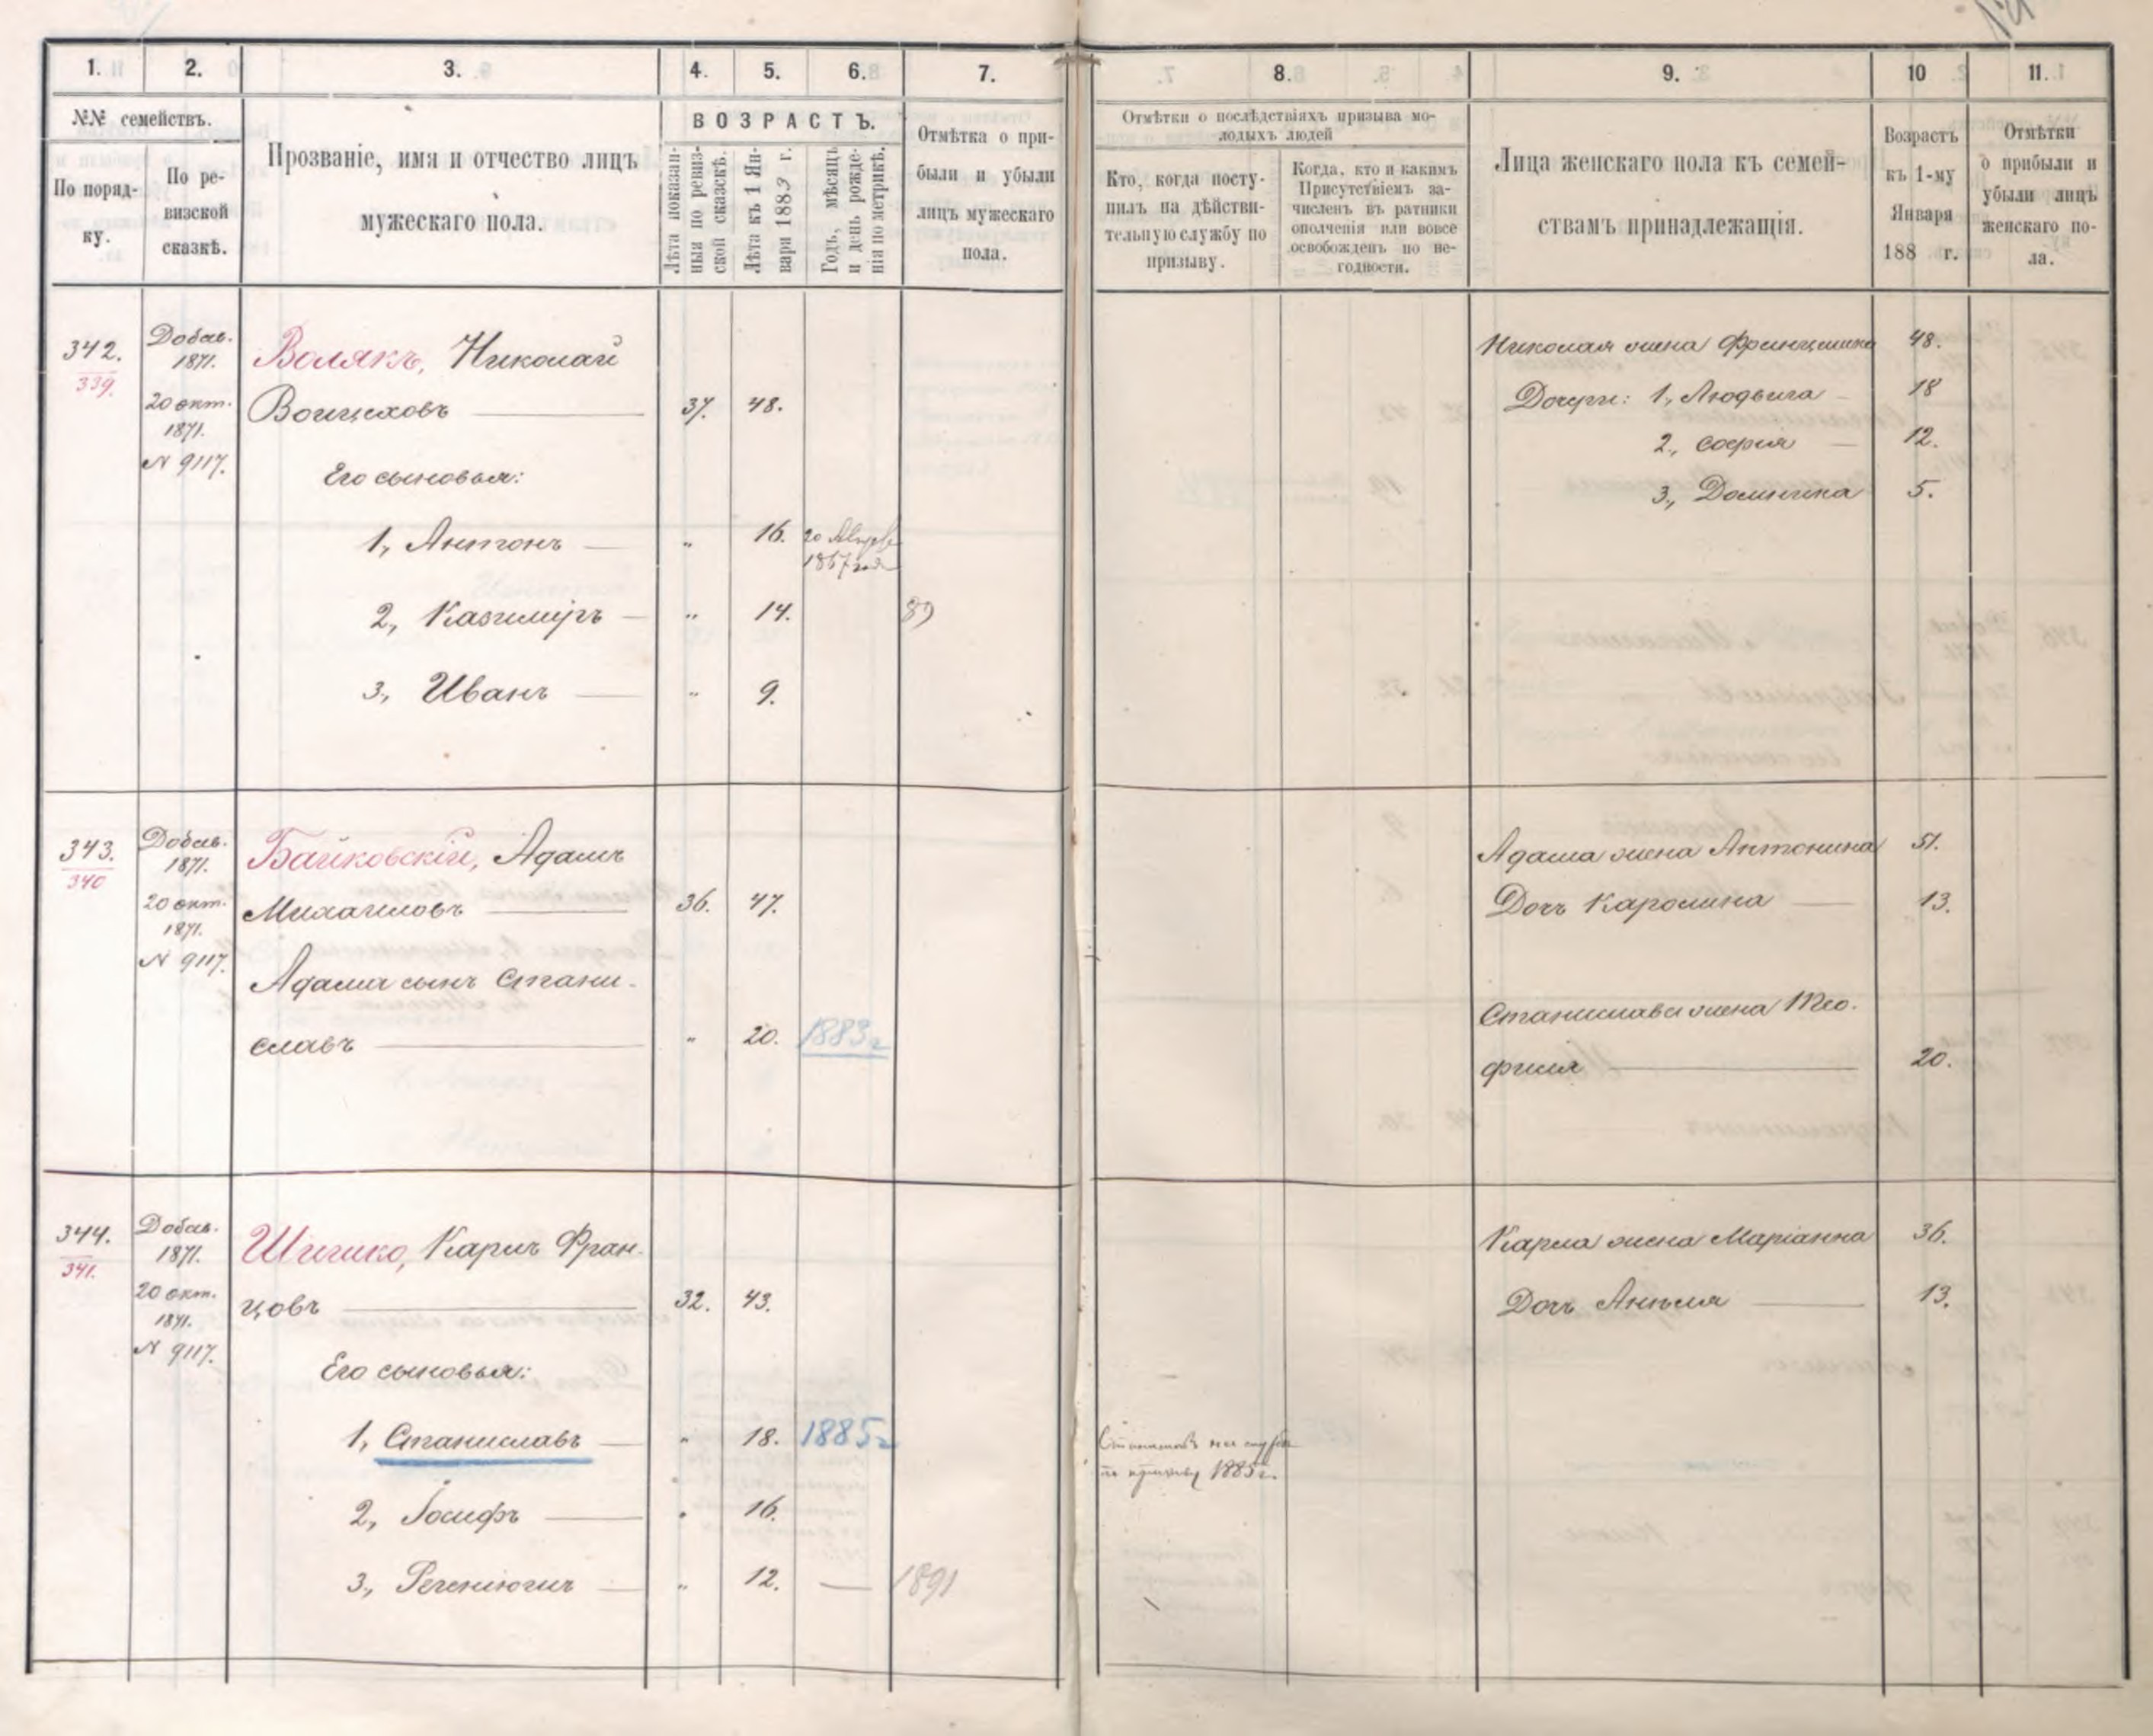 1.
2.
3.
4.
5.
6.
7.
8.
9.
10
11.
№№ семействъ.
По поряд-
ку.
По ре-
визской
сказкѣ.
Прозваніе, имя и отчество лицъ
мужескаго пола.
ВОЗРАСТЪ.
Лѣта показан-
ныя по ревиз-
ской сказкѣ.
Лѣта къ 1 Ян-
варя 1883 г.
Годъ, мѣсяцъ
и день рожде-
нія по метрикѣ.
Отмѣтка о при-
были и убыли
лицъ мужескаго
пола.
Отмѣтки о послѣдствіяхъ призыва мо-
лодыхъ людей
Кто, когда посту-
пилъ на дѣйстви-
тельную службу по
призыву.
Когда, кто и какимъ
Присутствіемъ за-
численъ въ ратники
ополченія или вовсе
освобожденъ по не-
годности.
Лица женскаго пола къ семей-
ствамъ принадлежащія.
Возрастъ
къ 1-му
Января
188 г.
Отмѣтки
о прибыли и
убыли лицъ
женскаго по-
ла.
342.
339.
Добав.
1871.
20 окт.
1871.
N 9117.
Волякъ, Николай
Войцеховъ 37. 48.
Его сыновья:
1, Антонъ „ 16. 20
1867
2, Казиміръ „ 14. 89
3, Иванъ „ 9.
Николая жена Францишка 48.
Дочери: 1, Людвига 18
2, Софія 12.
3, Домника 5.
343.
340
Добав.
1871.
20 окт.
1871.
N 9117.
Байковскій, Адамъ
Михайловъ 36. 47.
Адама сынъ Стани-
славъ „ 20. 1883г
Адама жена Антонина 51.
Дочь Каролина 13.
Станислава жена Тео-
филя 20.
344.
341.
Добав.
1871.
20 окт.
1871.
N 9117.
Карлъ Фран-
цовъ 32. 43.
Его сыновья:
1, Станиславъ „ 18. 1885г
2, Іосифъ „ 16.
3, „ 12. 1891
Станиславъ на службѣ
по призыву 1885г.
Карла жена Маріанна 36.
Дочь Анѣля 13.